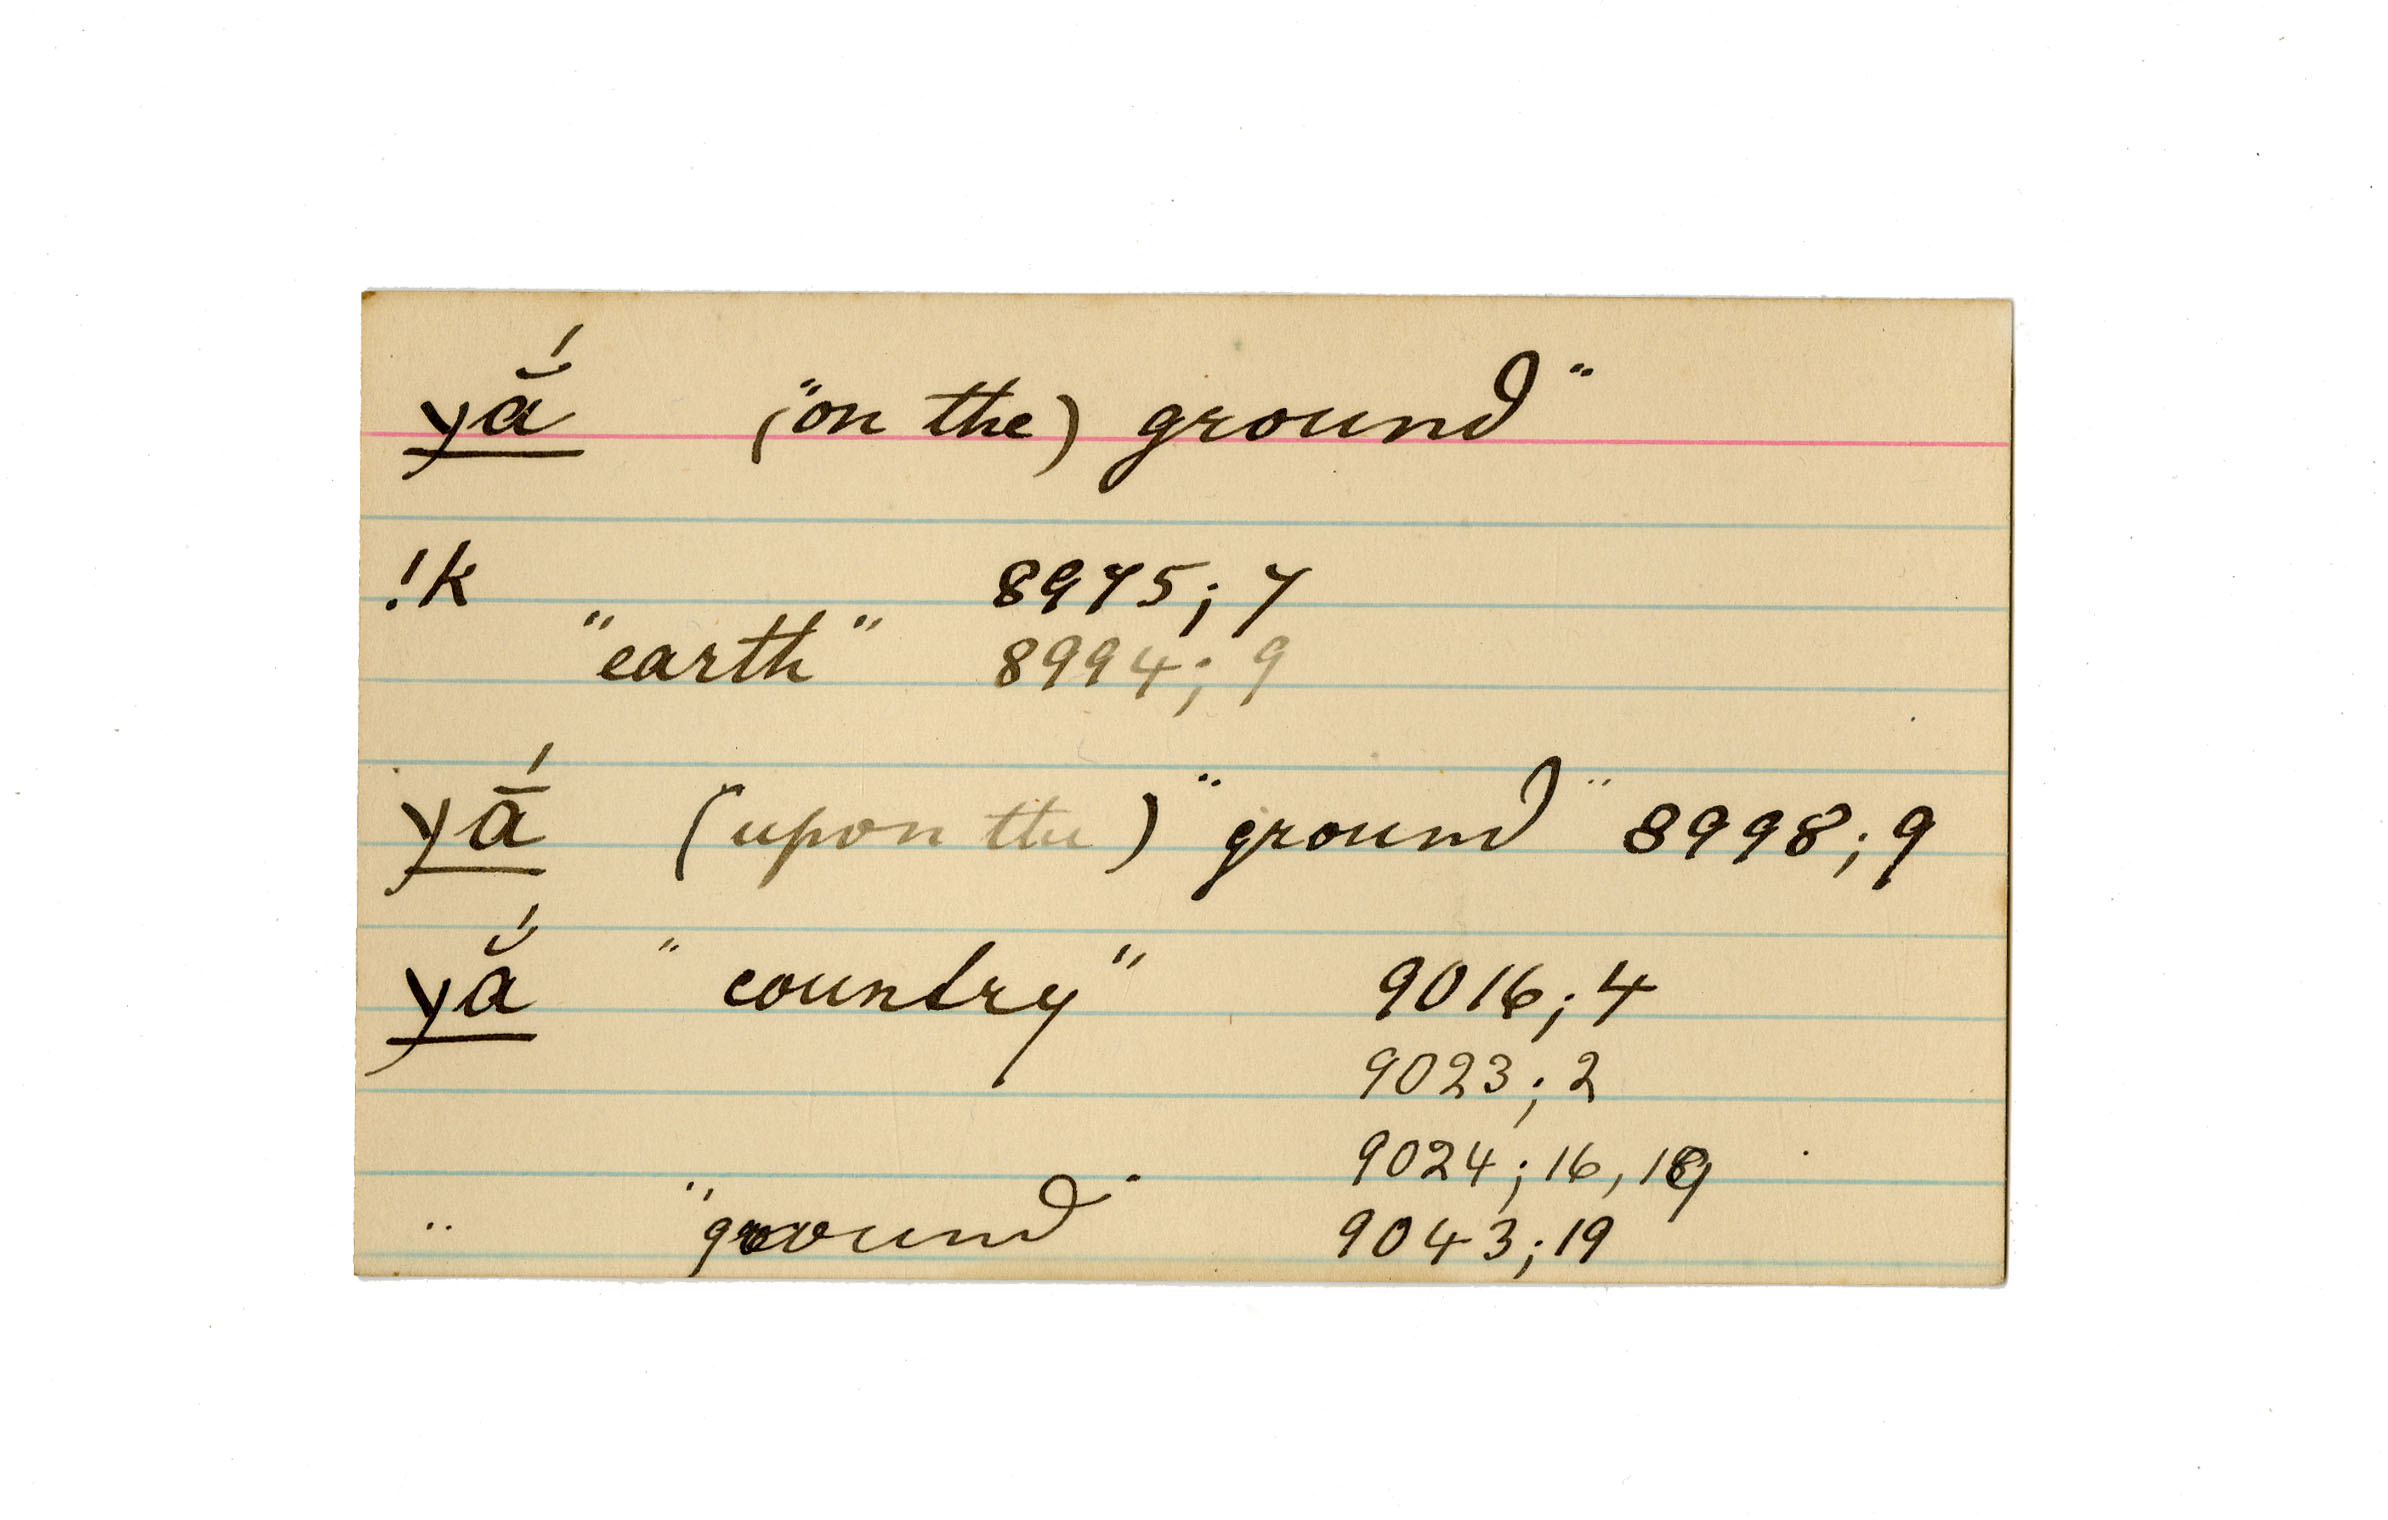 yắ ("on the) ground"
!k 8975; 7
"earth" 8994; 9
yā́ ("upon the) "ground" 8998; 9
yắ "country" 9016; 4
9023; 2
9024; 16, 19
" "ground" 9043; 19